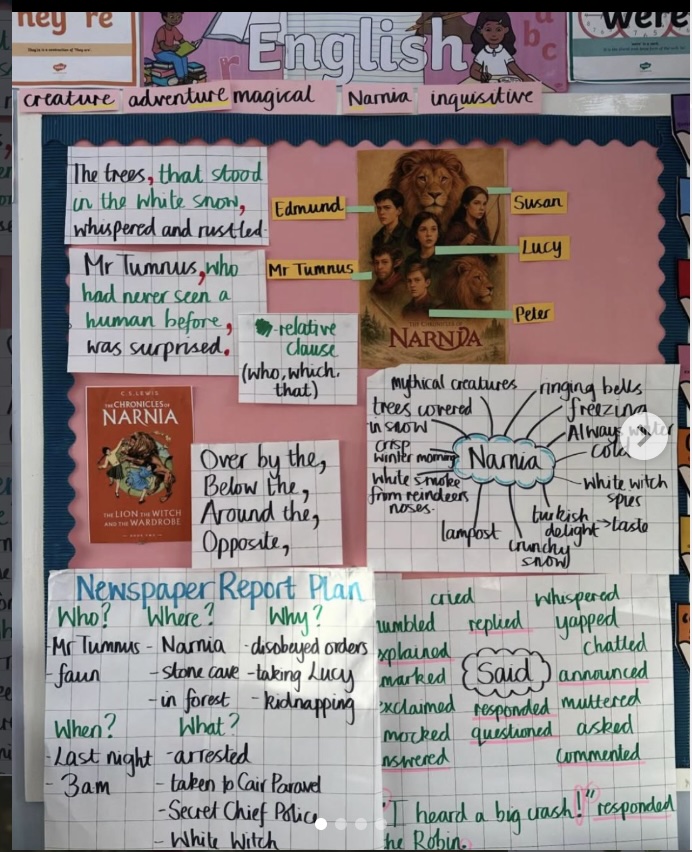 they're
They're is a contraction of They are
English
were
a
b
c
r
creature adventure magical Narnia inquisitive
The trees, that stood
in the white snow,
whispered and rustled.
Mr Tumnus, who
had never seen a
human before,
was surprised.
-relative
clause
(who, which,
that)
Edmund
Mr Tumnus
Susan
Lucy
Peter
THE CHRONICLES OF
NARNIA
C.S. LEWIS
THE CHRONICLES OF
NARNIA
THE LION THE WITCH
AND THE WARDROBE
Over by the,
Below the,
Around the,
Opposite,
Narnia
mythical creatures
trees covered
in snow
crisp
winter morning
white smoke
from reindeers
noses.
lampost
crunchy
snow
turkish
delight → taste
white witch
spies
cold
Always winter
freezing
ringing bells
Newspaper Report Plan
Who? Where? Why?
Mr Tumnus - Narnia -disobeyed orders
- faun - stone cave -taking Lucy
- in forest - kidnapping
When? What?
-Last night -arrested
- 3am - taken to Cair Paravel
-Secret Chief Police
- White Witch
Said
cried whispered
umbled replied yapped
xplained chatted
marked announced
xclaimed responded muttered
mocked questioned asked
nswered commented
"I heard a big crash!" responded
he Robin.